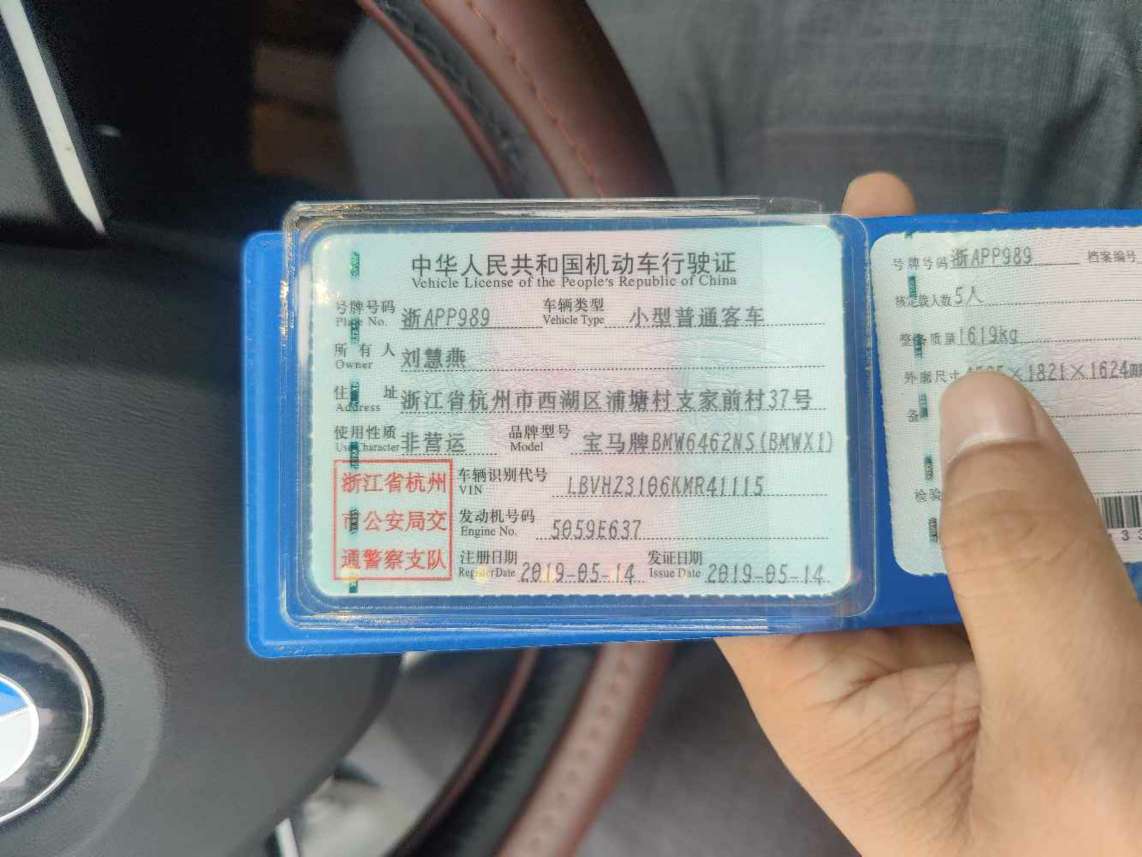 中华人民共和国机动车行驶证
Vehicle License of the People's Republic of China
号牌号码 浙APP989 车辆类型 小型普通客车
Plate No. Vehicle Type
所有人 刘慧燕
Owner
住址 浙江省杭州市西湖区浦塘村支家前村37号
Address
使用性质 非营运 品牌型号 宝马牌BMW6462NS(BMWX1)
Use Character Model
浙江省杭州
市公安局交
通警察支队
车辆识别代号 LBVHZ3106KMR41115
VIN
发动机号码 5059E637
Engine No.
注册日期 2019-05-14 发证日期 2019-05-14
Register Date Issue Date
号牌号码 浙APP989 档案编号
核定载人数 5人
整备质量 1619kg
外廓尺寸 ×1821×1624
备
检验